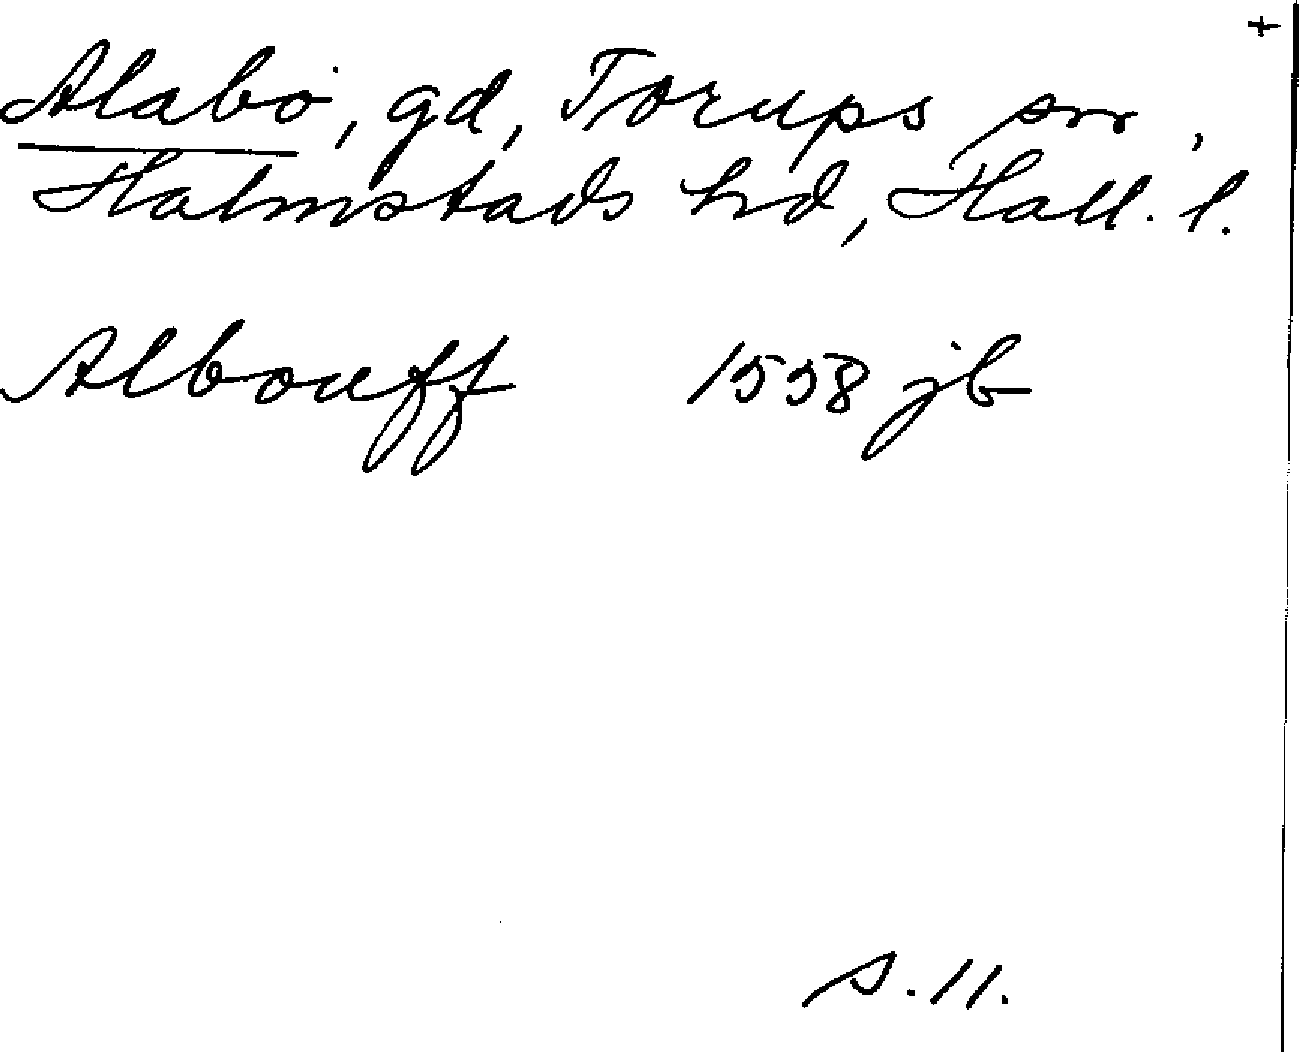 +
Alabo, gd, Torups sn,
Halmstads hd, Hall. l.
Albouff 1558 jb
s. 11.